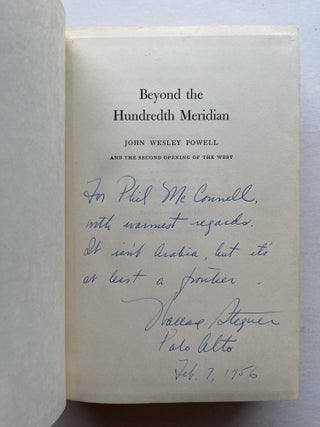 Beyond the
Hundredth Meridian
JOHN WESLEY POWELL
AND THE SECOND OPENING OF THE WEST
For Phil McConnell,
with warmest regards.
It isn't Arabia, but it's
at least a frontier.
Wallace Stegner
Palo Alto
Feb. 7, 1956